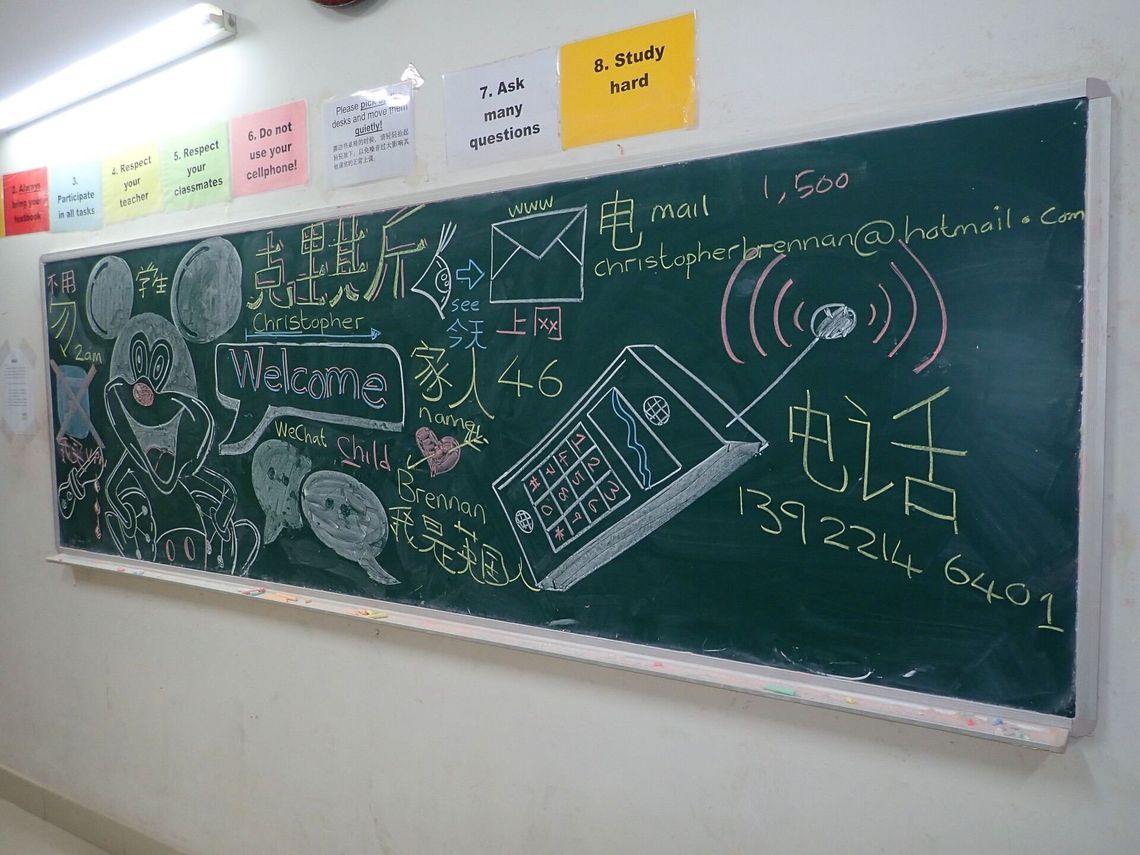 2. Always
bring your
textbook
3.
Participate
in all tasks
4. Respect
your
teacher
5. Respect
your
classmates
6. Do not
use your
cellphone!
Please pick
desks and move them
quietly!
7. Ask
many
questions
8. Study
hard
不用
勿
2am
学生
Christopher
Welcome
WeChat
Child
see
今天
www
上网
家人 46
name
Brennan
我是英国人
电 mail
1,500
christopherbrennan@hotmail.com
1 2 3
4 5 6
7 8 9
* 0 #
电话
139 2214 6401